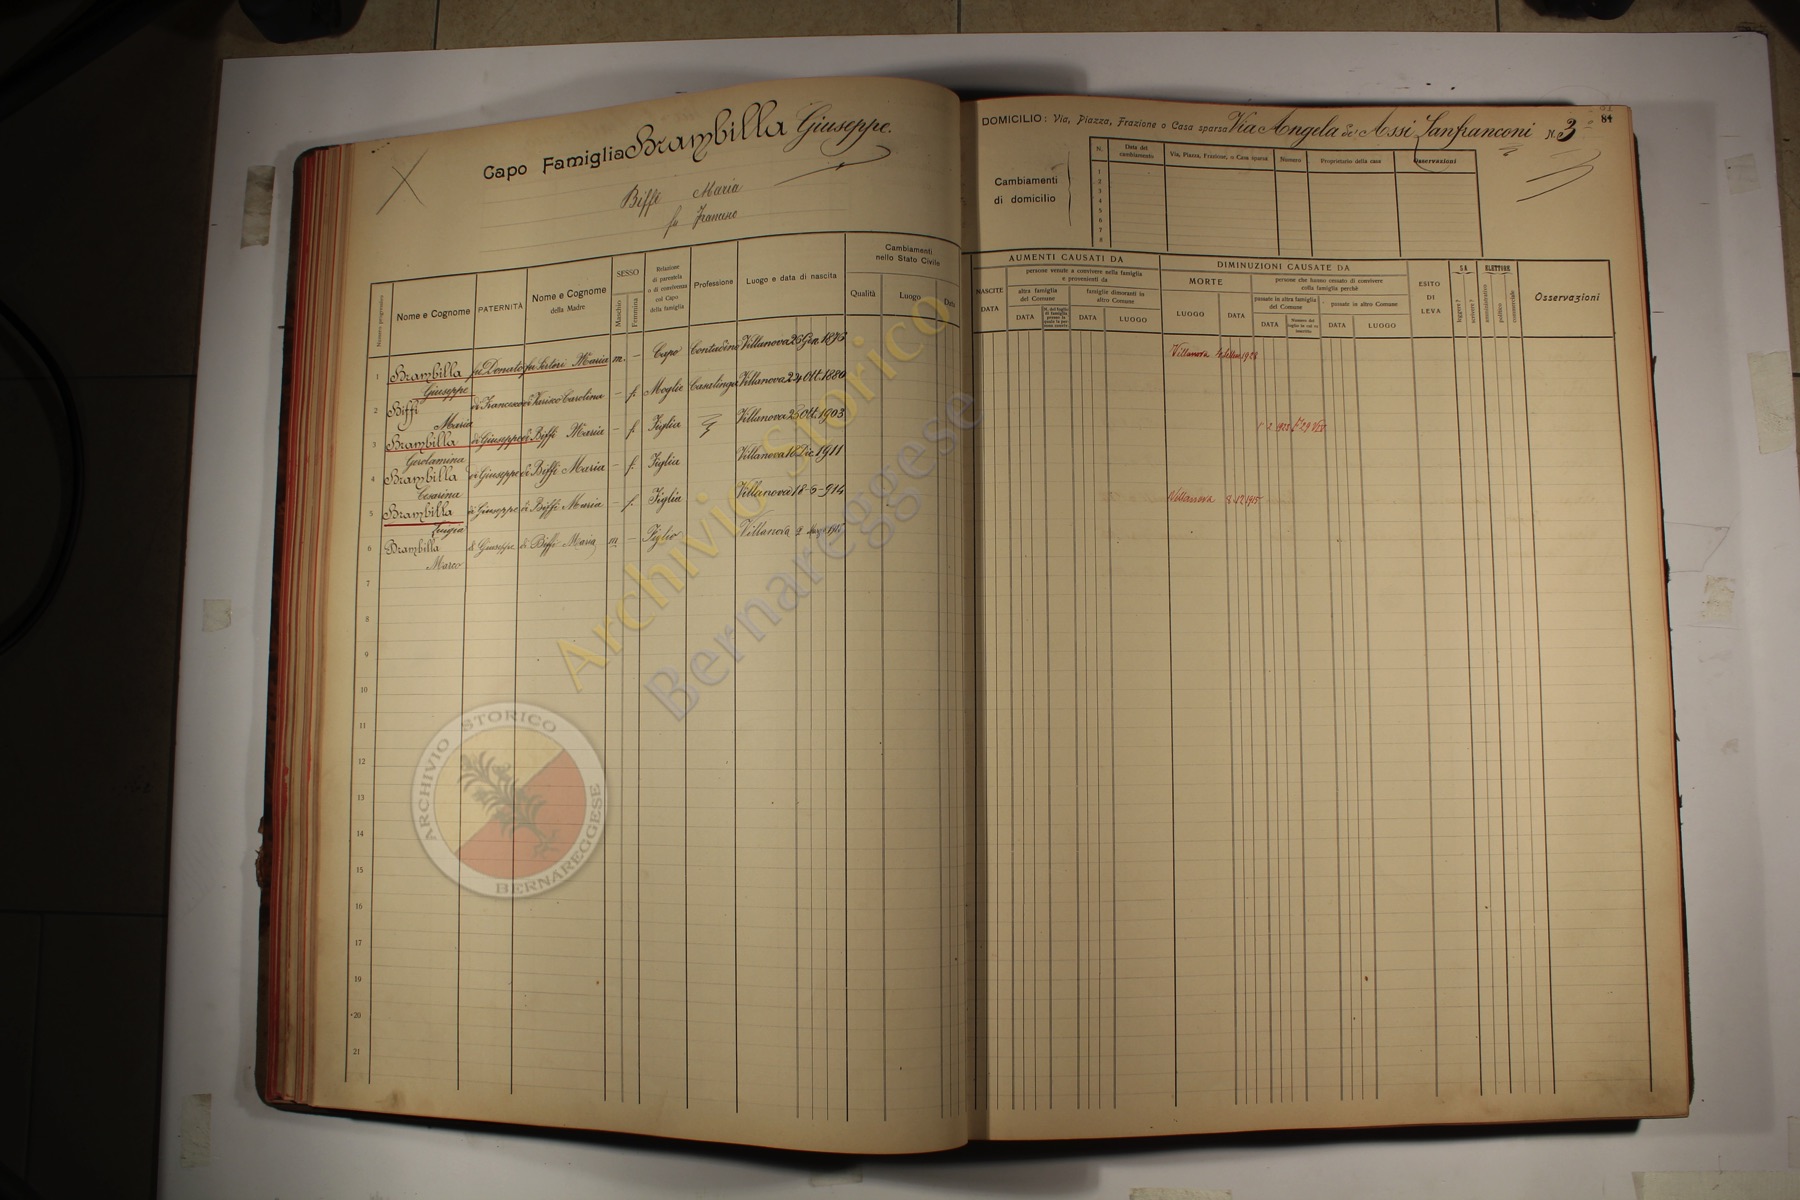 Capo Famiglia Brambilla Giuseppe.
Biffi Maria
fu Francesco
Numero progressivo
Nome e Cognome
PATERNITÀ
Nome e Cognome
della Madre
SESSO
Maschio
Femmina
Relazione
di parentela
o di convivenza
col Capo
della famiglia
Professione
Luogo e data di nascita
Cambiamenti
nello Stato Civile
Qualità
Luogo
Data
1 Brambilla Giuseppe fu Donato fu Sertori Maria m. – Capo Contadino Villanova 26 Gen. 1876
2 Biffi Maria di Francesco di Varisco Carolina – f. Moglie Casalinga Villanova 24 Ott. 1880
3 Brambilla Gerolamina di Giuseppe di Biffi Maria – f. Figlia " Villanova 25 Ott. 1903
4 Brambilla Cesarina di Giuseppe di Biffi Maria – f. Figlia Villanova 16 Dic. 1911
5 Brambilla Luigia di Giuseppe di Biffi Maria – f. Figlia Villanova 18-6-914
6 Brambilla Marco di Giuseppe di Biffi Maria m – Figlio Villanova
7
8
9
10
11
12
13
14
15
16
17
18
19
20
21
84
DOMICILIO: Via, Piazza, Frazione o Casa sparsa Via Angela de' Assi Lanfranconi N.° 3
Cambiamenti
di domicilio
N.
Data del
cambiamento
Via, Piazza, Frazione, o Casa sparsa
Numero
Proprietario della casa
Osservazioni
1
2
3
4
5
6
7
8
AUMENTI CAUSATI DA
NASCITE
DATA
persone venute a convivere nella famiglia
e provenienti da
altra famiglia
del Comune
DATA
famiglie dimoranti in
altro Comune
DATA
LUOGO
DIMINUZIONI CAUSATE DA
MORTE
LUOGO
DATA
persone che hanno cessato di convivere
colla famiglia perchè
passate in altra famiglia
del Comune
DATA
Numero del
foglio in cui su
inscritta
passate in altro Comune
DATA
LUOGO
ESITO
DI
LEVA
SA
leggere?
scrivere?
ELETTORE
amministrativo
politico
commerciale
Osservazioni
Villanova 1928
1 2 922
Villanova 8.12.1915
Archivio Storico
Bernareggese
ARCHIVIO STORICO
BERNAREGGESE